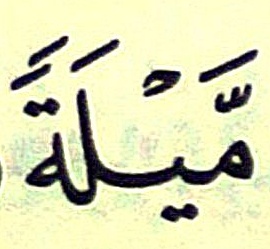 مَّيْلَةً